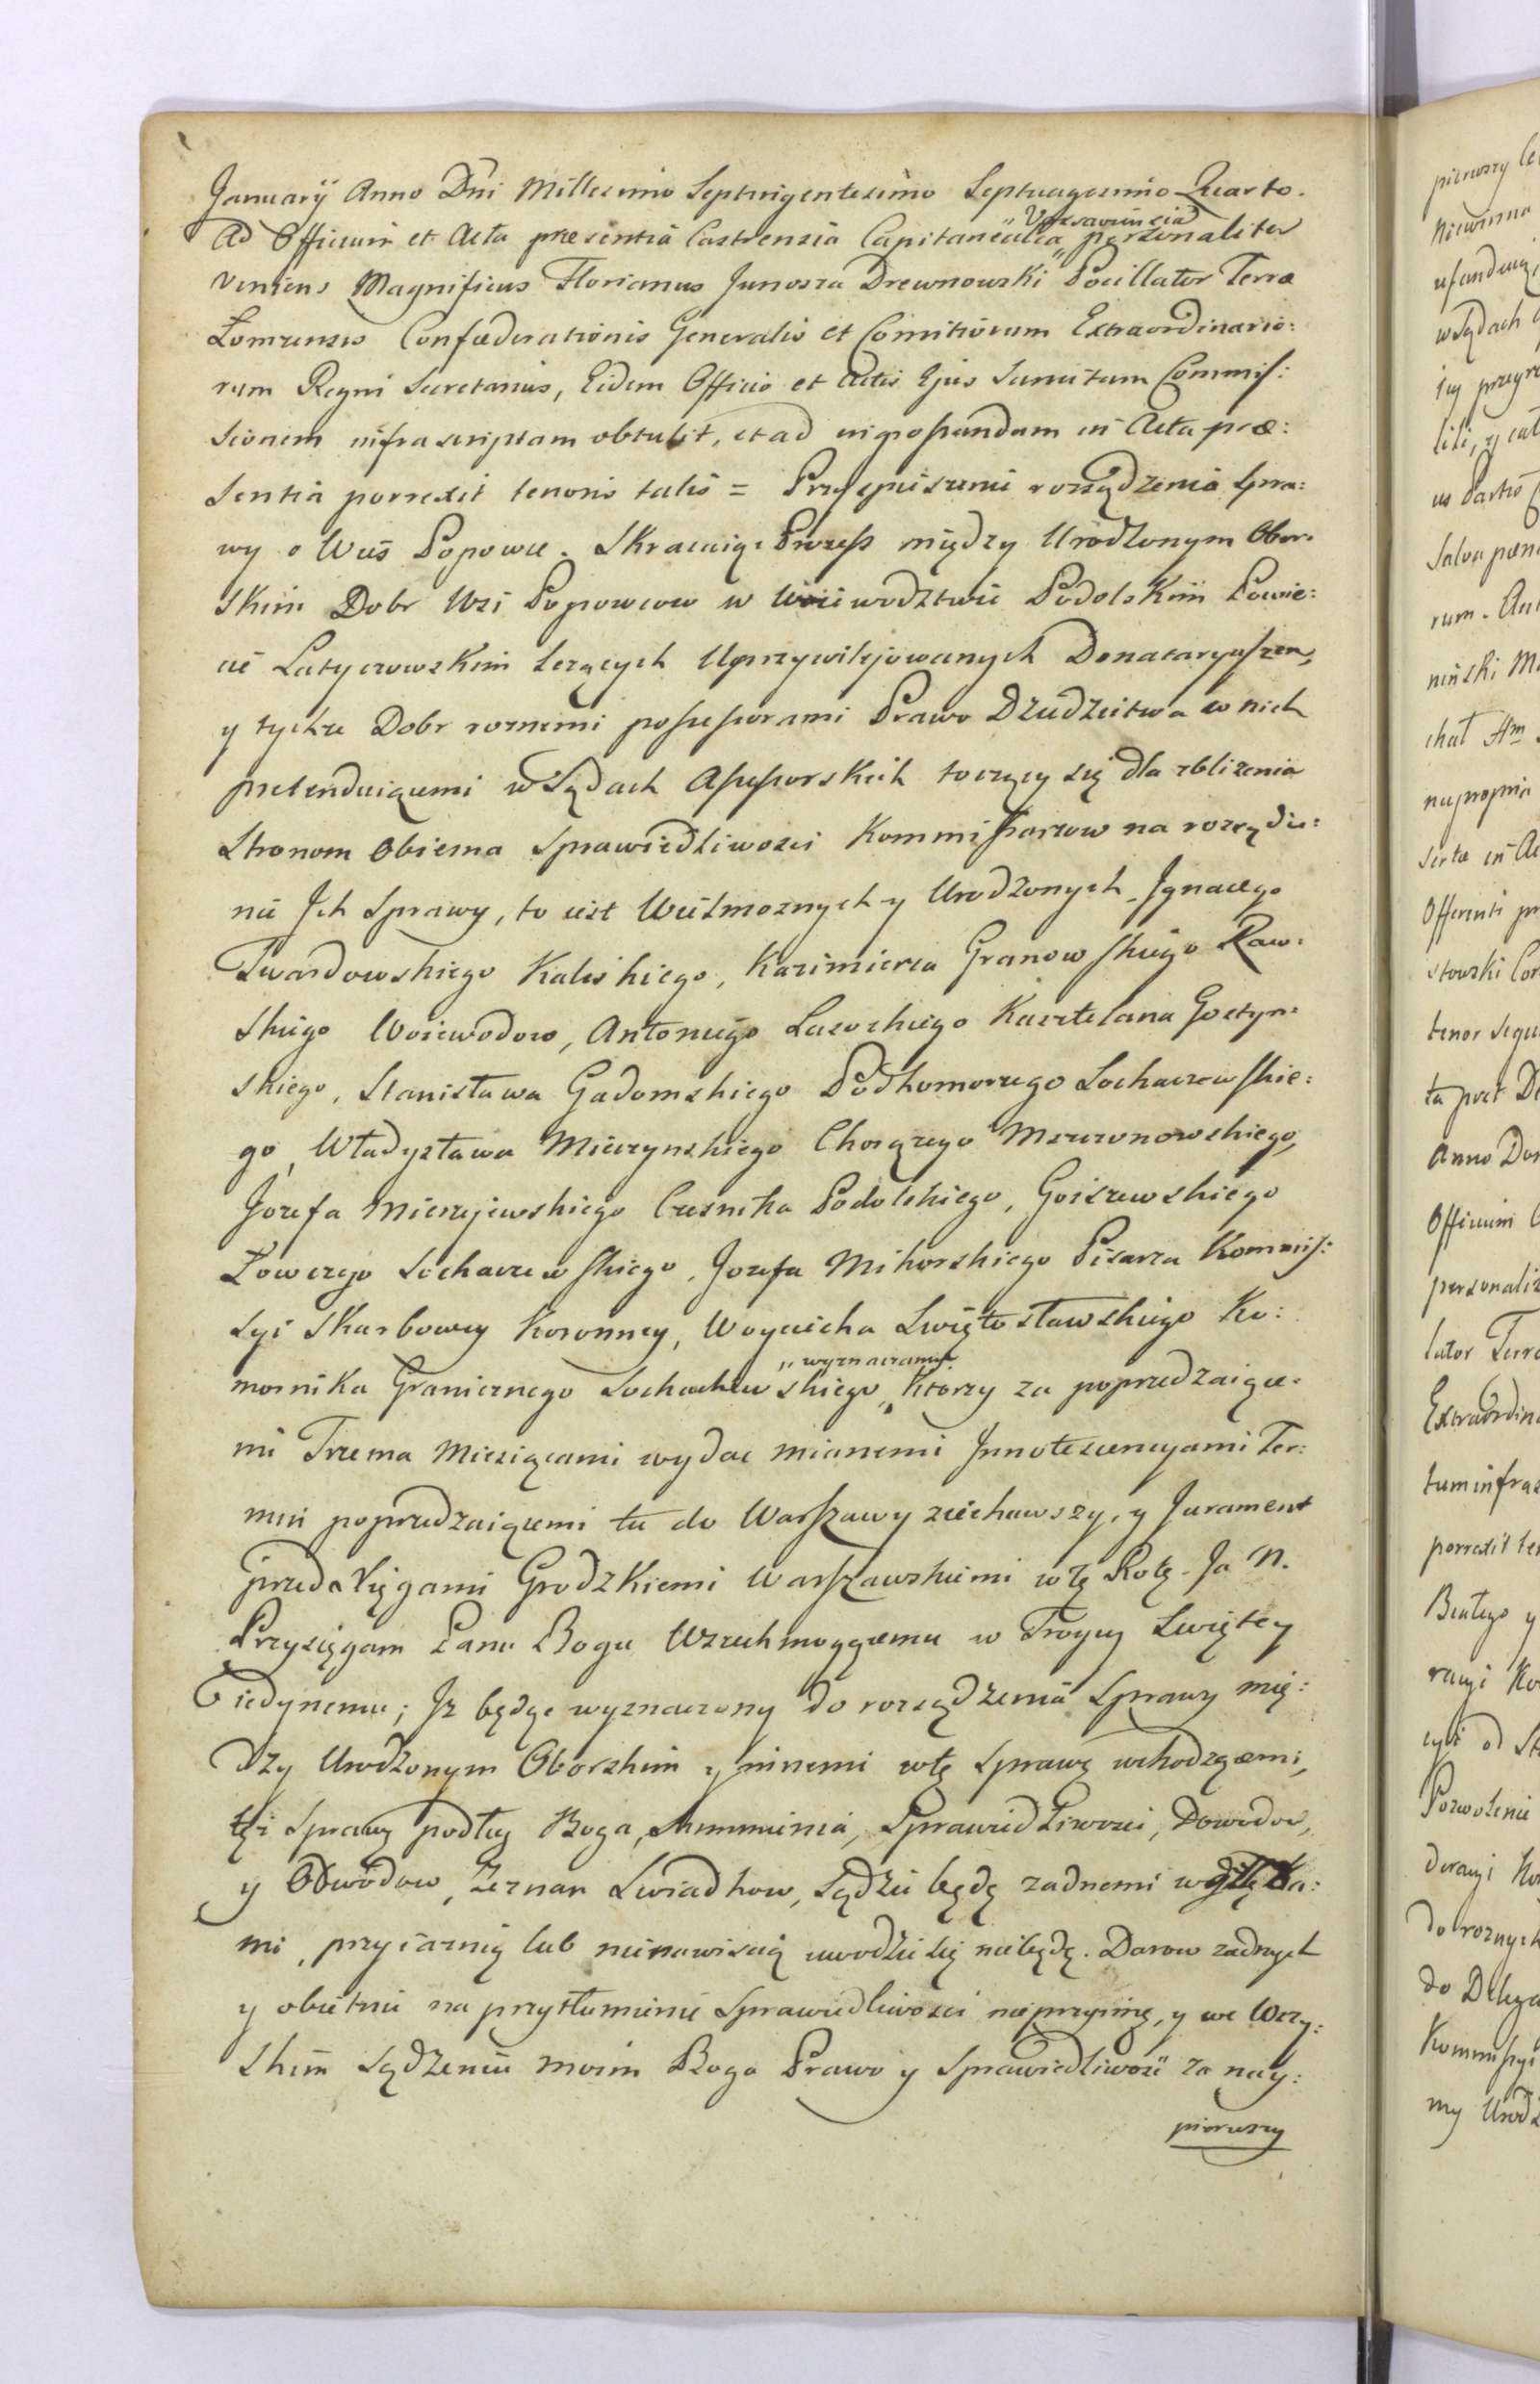 Januarij Anno Dñi Millesimo Septingentesimo Septuagesimo Quarto.
Ad Officium et Acta præsentia Castrensia Capitanealia „Varsaviensia personaliter
veniens Magnificus Florianus Junosza Drewnowski Pocillator Terræ
Łomzensis Confæderationis Generalis et Comitiorum Extraordinario:
rum Regni Secretarius, Eidem Officio et Actis Ejus Sancitum Commis:
sionem infrascriptam obtulit, et ad ingrossandum in Acta præ:
sentia porrexit tenoris talis = Przyspieszenie rozsądzenia Spra:
wy o Wieś Popowce. Skracaiąc Process między Urodzonym Obor:
skim Dobr Wsi Popowcow w Woiewodztwie Podolskim Powie:
cie Latyczowskim lezących Uprzywilejowanych Donataryuszem,
y tychze Dobr roznemi possessorami Prawo Dziedzictwa w nich
pretenduiącemi w Sądach Assessorskich toczący się dla zblizenia
Stronom obiema Sprawiedliwosci Kommissarzow na rozsądze:
nie Ich Sprawy, to iest Wielmoznych y Urodzonych Ignacego
Twardowskiego Kaliskiego, Kazimierza Granowskiego Raw:
skiego Woiewodow, Antoniego Lasockiego Kasztelana Gostyn:
skiego, Stanisława Gadomskiego Podkomorzego Sochaczewskie:
go, Władysława Mierzynskiego Chorązego Mszczonowskiego,
Jozefa Mierzejewskiego Czesnika Podolskiego, Goiszewskiego
Łowczego Sochaczewskiego, Jozefa Mikorskiego Pisarza Kommis:
syi Skarbowey Koronney, Woyciecha Swiętosławskiego Ko:
mornika Granicznego Sochaczewskiego „wyznaczamy. Ktorzy za poprzedzaiące:
mi Trzema Miesiącami wydac mianemi Innotescencyami Ter:
min poprzedzaiącemi tu do Warszawy ziechawszy, y Jurament
przed Xięgami Grodzkiemi Warszawskiemi w tę Rotę. Ja N.
Przysięgam Panu Bogu Wszechmogącemu w Troycy Swiętey
iedynemu; Iz będąc wyznaczony do rozsądzenia Sprawy mię:
dzy Urodzonym Oborskim y innemi w tę Sprawę wchodzącemi,
tęż Sprawę podług Boga, Summienia, Sprawiedliwosci, Dowodow,
y Obwodow, Zeznan Swiadkow, Sądzić będę zadnemi względa:
mi, przyiaznią lub nienawiscią uwodzić się nie będę. Darow zadnych
y obietnic na przytłumienie Sprawiedliwosci nie przyimę, y we Wszy:
stkim Sądzeniu moim Boga Prawo y Sprawiedliwość za nay:
pierwszy